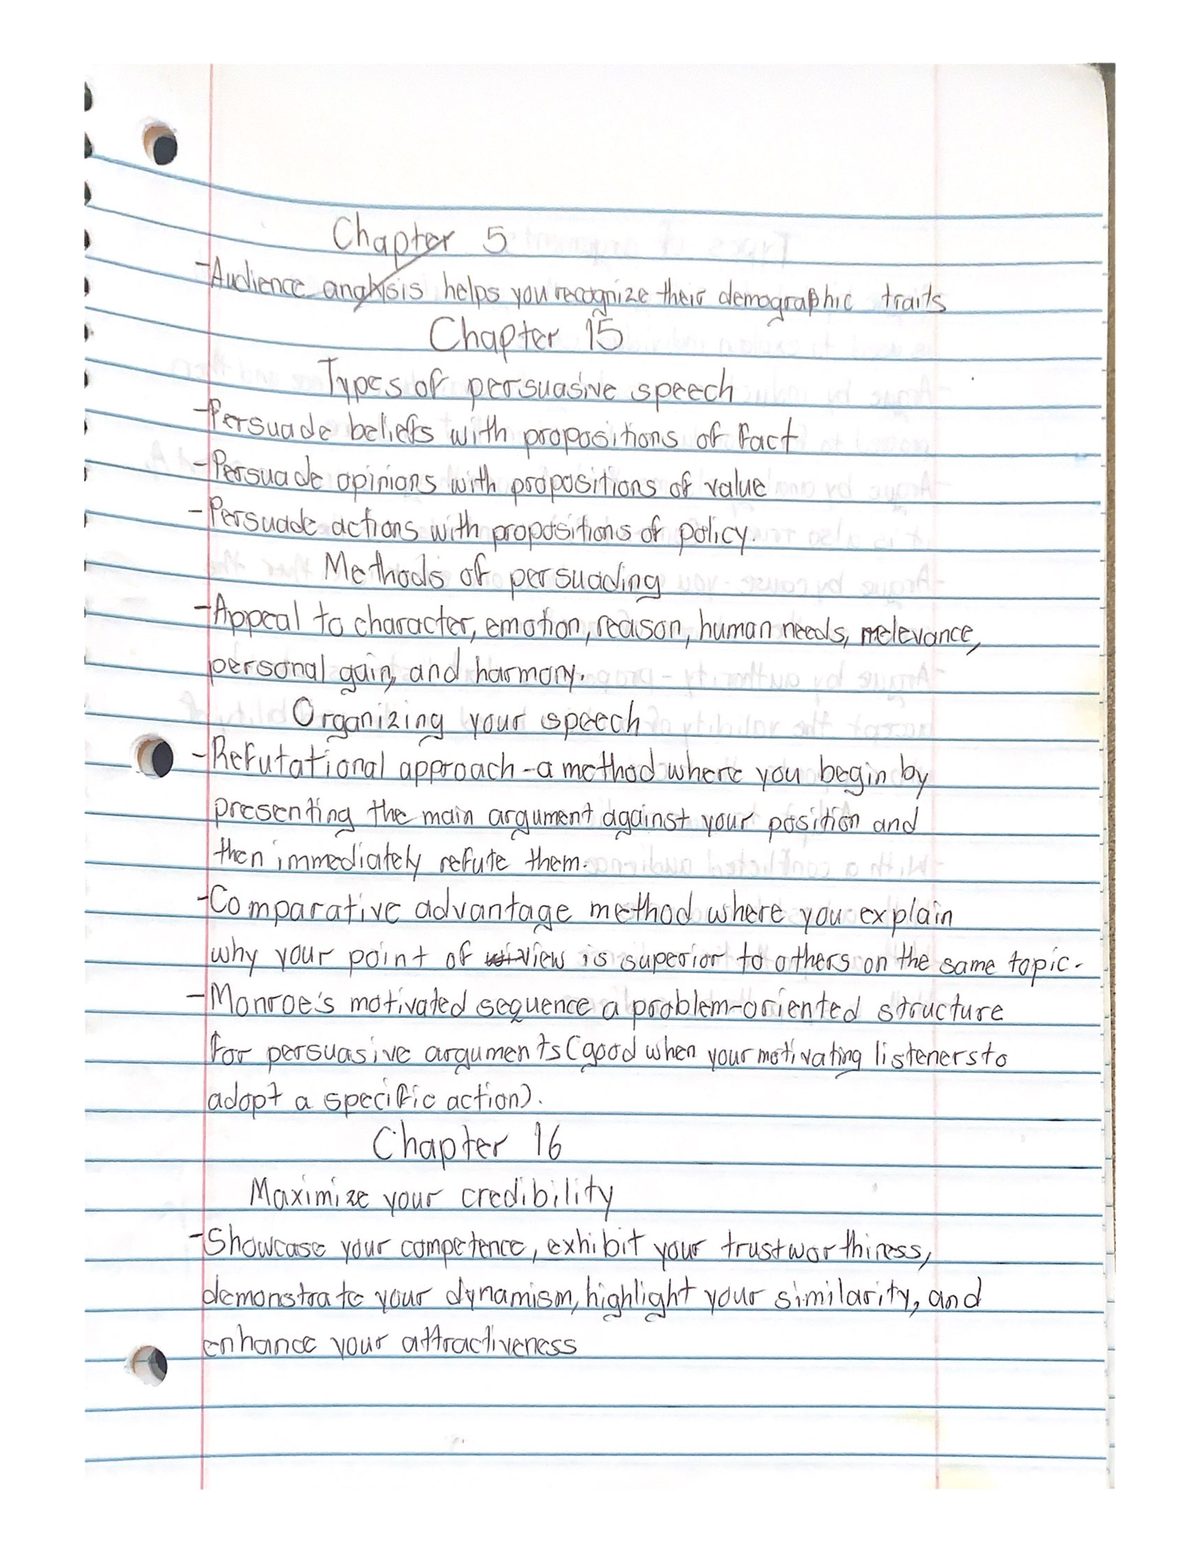 Chapter 5
-Audience analysis helps you recognize their demographic traits
Chapter 15
Types of persuasive speech
-Persuade beliefs with propositions of fact
-Persuade opinions with propositions of value
-Persuade actions with propositions of policy.
Methods of persuading
-Appeal to character, emotion, reason, human needs, relevance,
personal gain, and harmony.
Organizing your speech
-Refutational approach-a method where you begin by
presenting the main argument against your position and
then immediately refute them.
-Comparative advantage method where you explain
why your point of view is superior to others on the same topic.
-Monroe's motivated sequence a problem-oriented structure
for persuasive arguments (good when your motivating listeners to
adopt a specific action).
Chapter 16
Maximize your credibility
-Showcase your competence, exhibit your trustworthiness,
demonstrate your dynamism, highlight your similarity, and
enhance your attractiveness